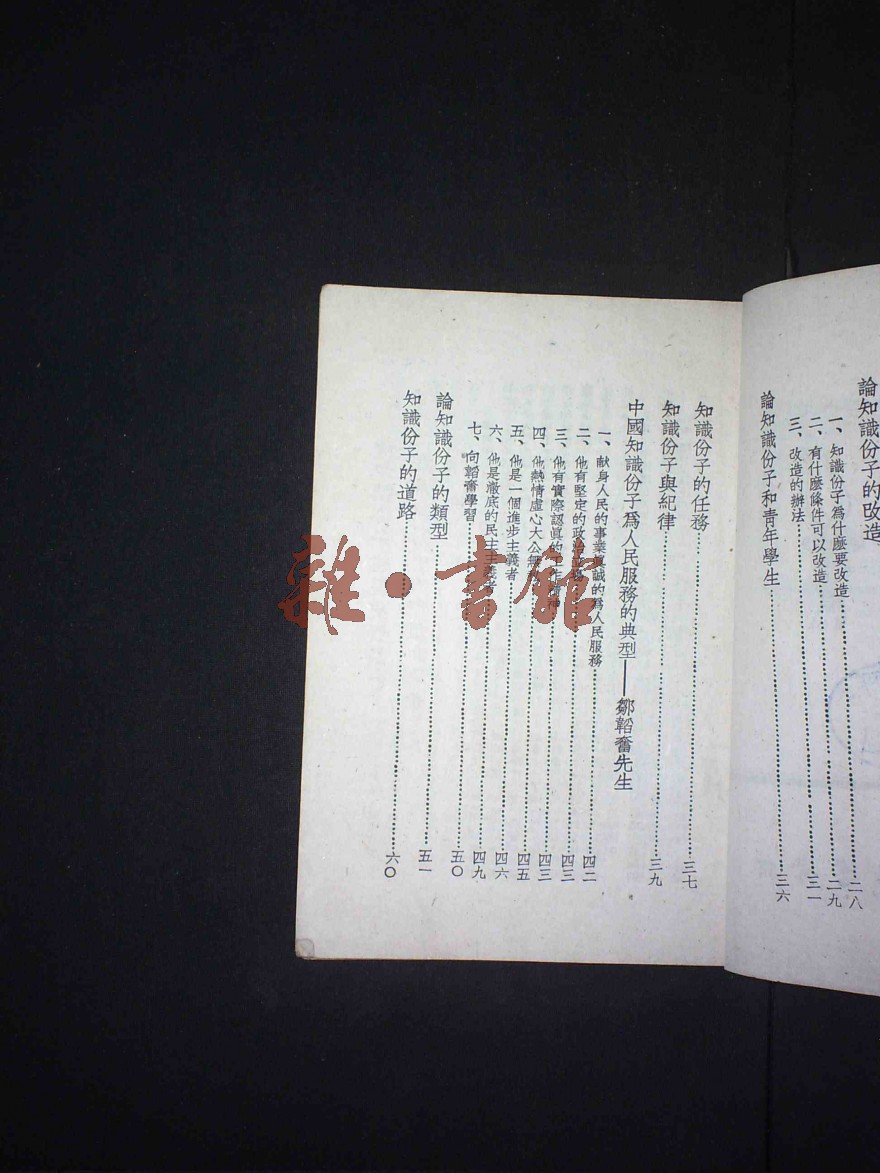 論知識份子的改造……二八
一、知識份子爲什麽要改造……二九
二、有什麽條件可以改造……三一
三、改造的辦法
論知識份子和青年學生……三六
知識份子的任務……三七
知識份子與紀律……三九
中國知識份子爲人民服務的典型——鄒韜奮先生
一、献身人民的事業真誠的爲人民服務……四二
二、他有堅定的政治……四三
三、他有實際認眞的工作精神……四三
四、他熱情虛心大公無……四五
五、他是一個進步主義者……四六
六、他是澈底的民主主義者……四九
七、向韜奮學習……五〇
論知識份子的類型……五一
知識份子的道路……六〇
雜·書館